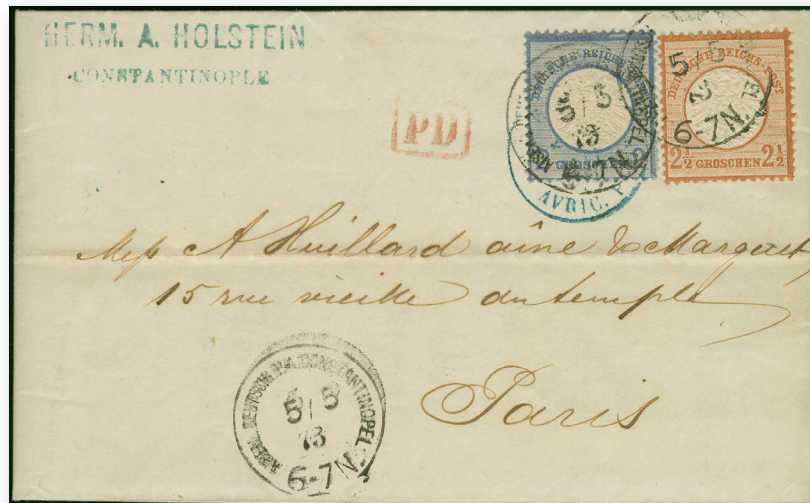 HERM. A. HOLSTEIN
CONSTANTINOPLE
PD
DEUTSCHE REICHS-POST
2 GROSCHEN
DEUTSCHE REICHS-POST
2½ GROSCHEN 2½
5/5
73
6-7N.
AVRIC.
Mess A Huillard aîné & Marquet
15 rue vieille du temple
Paris
KAISERL. DEUTSCH. P.A. CONSTANTINOPEL
5/5
73
6-7N.